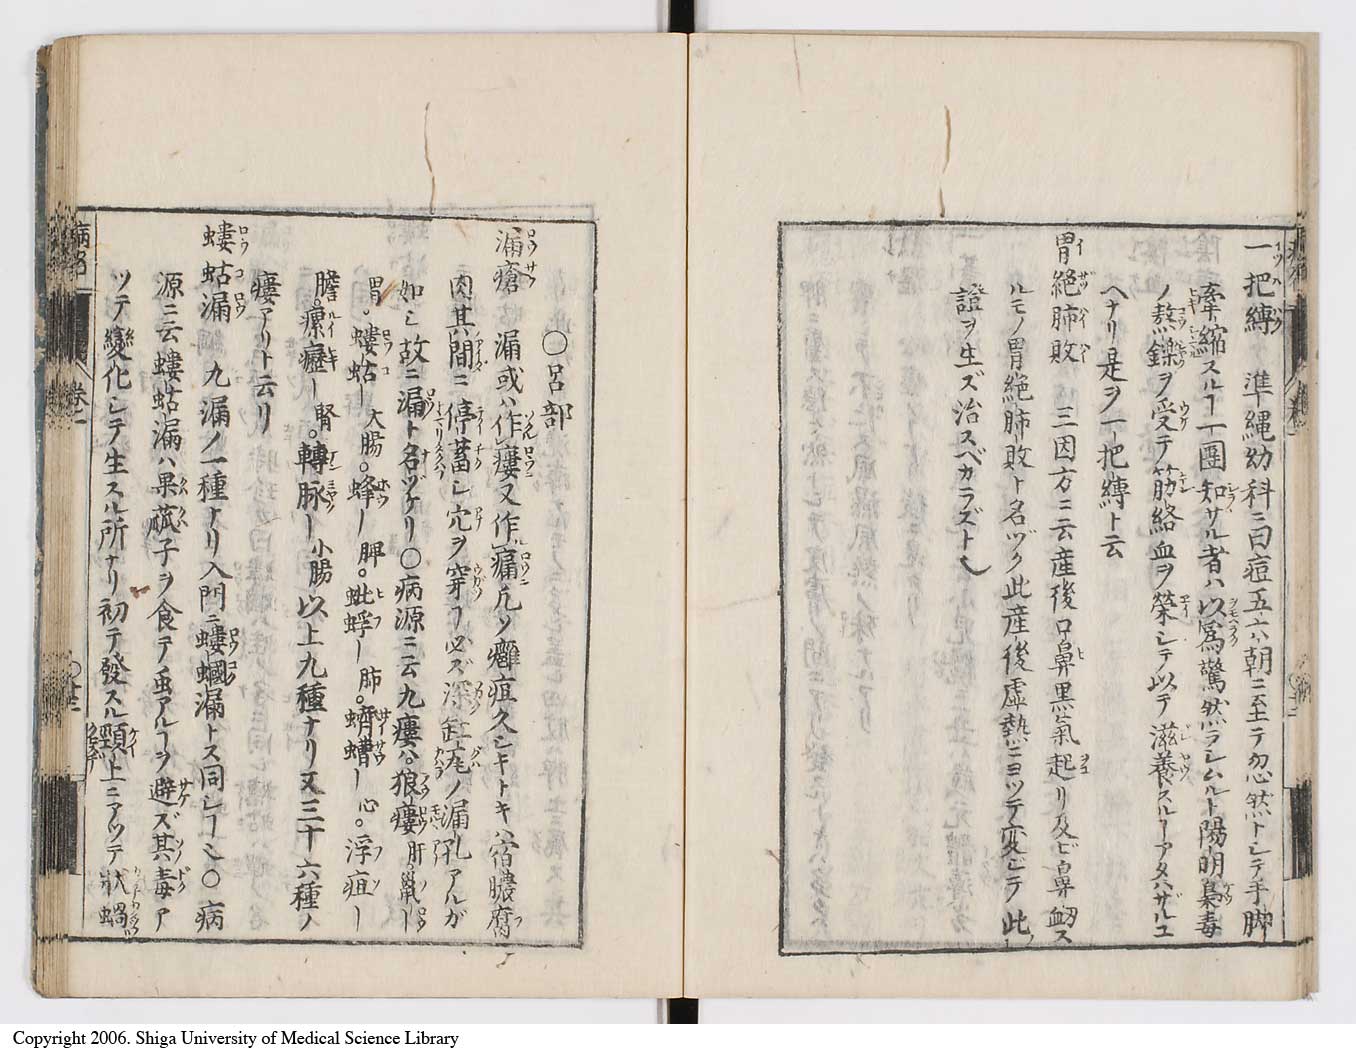 一把縛 準縄幼科ニ曰痘五六朝ニ至テ忽然トシテ手脚
牽縮スルヿ一團知サル者ハ以爲驚然ラシムルト陽明梟毒
ノ熬鑠ヲ受テ筋絡血ヲ榮シテ以テ滋養スルヿアタハザルユ
ヘナリ是ヲ一把縛ト云
胃絶肺敗 三因方ニ云産後口鼻黒氣起リ及ビ鼻衂ス
ルモノ胃絶肺敗ト名ヅク此産後虚熱ニヨツテ変ビテ此
證ヲ生ズ治スベカラズト
〇呂部
漏瘡 漏或ハ作瘻又作痛凡ソ癰疽久シキトキハ宿膿腐
肉其間ニ停蓄シ穴ヲ穿フ必ズ深缸庑ノ漏孔アルガ
如シ故ニ漏ト名ヅケリ〇病源ニ云九瘻ハ狼瘻肝鼠ー
胃螻蛄ー大腸蜂ー脾蚍蜉ー肺蠐螬ー心浮疽ー
膽瘰癧ー腎轉脉ー小腸以上九種ナリ又三十六種ノ
瘻アリト云リ
螻蛄漏 九漏ノ一種ナリ入門ニ螻蟈漏トス同シ〇病
源ニ云螻蛄漏ハ果蓏子ヲ食テ虫アルヿヲ避ズ其毒ア
ツテ變化シテ生スル所ナリ初テ發スル頸上ニアツテ狀蝎
卷二
Copyright 2006. Shiga University of Medical Science Library